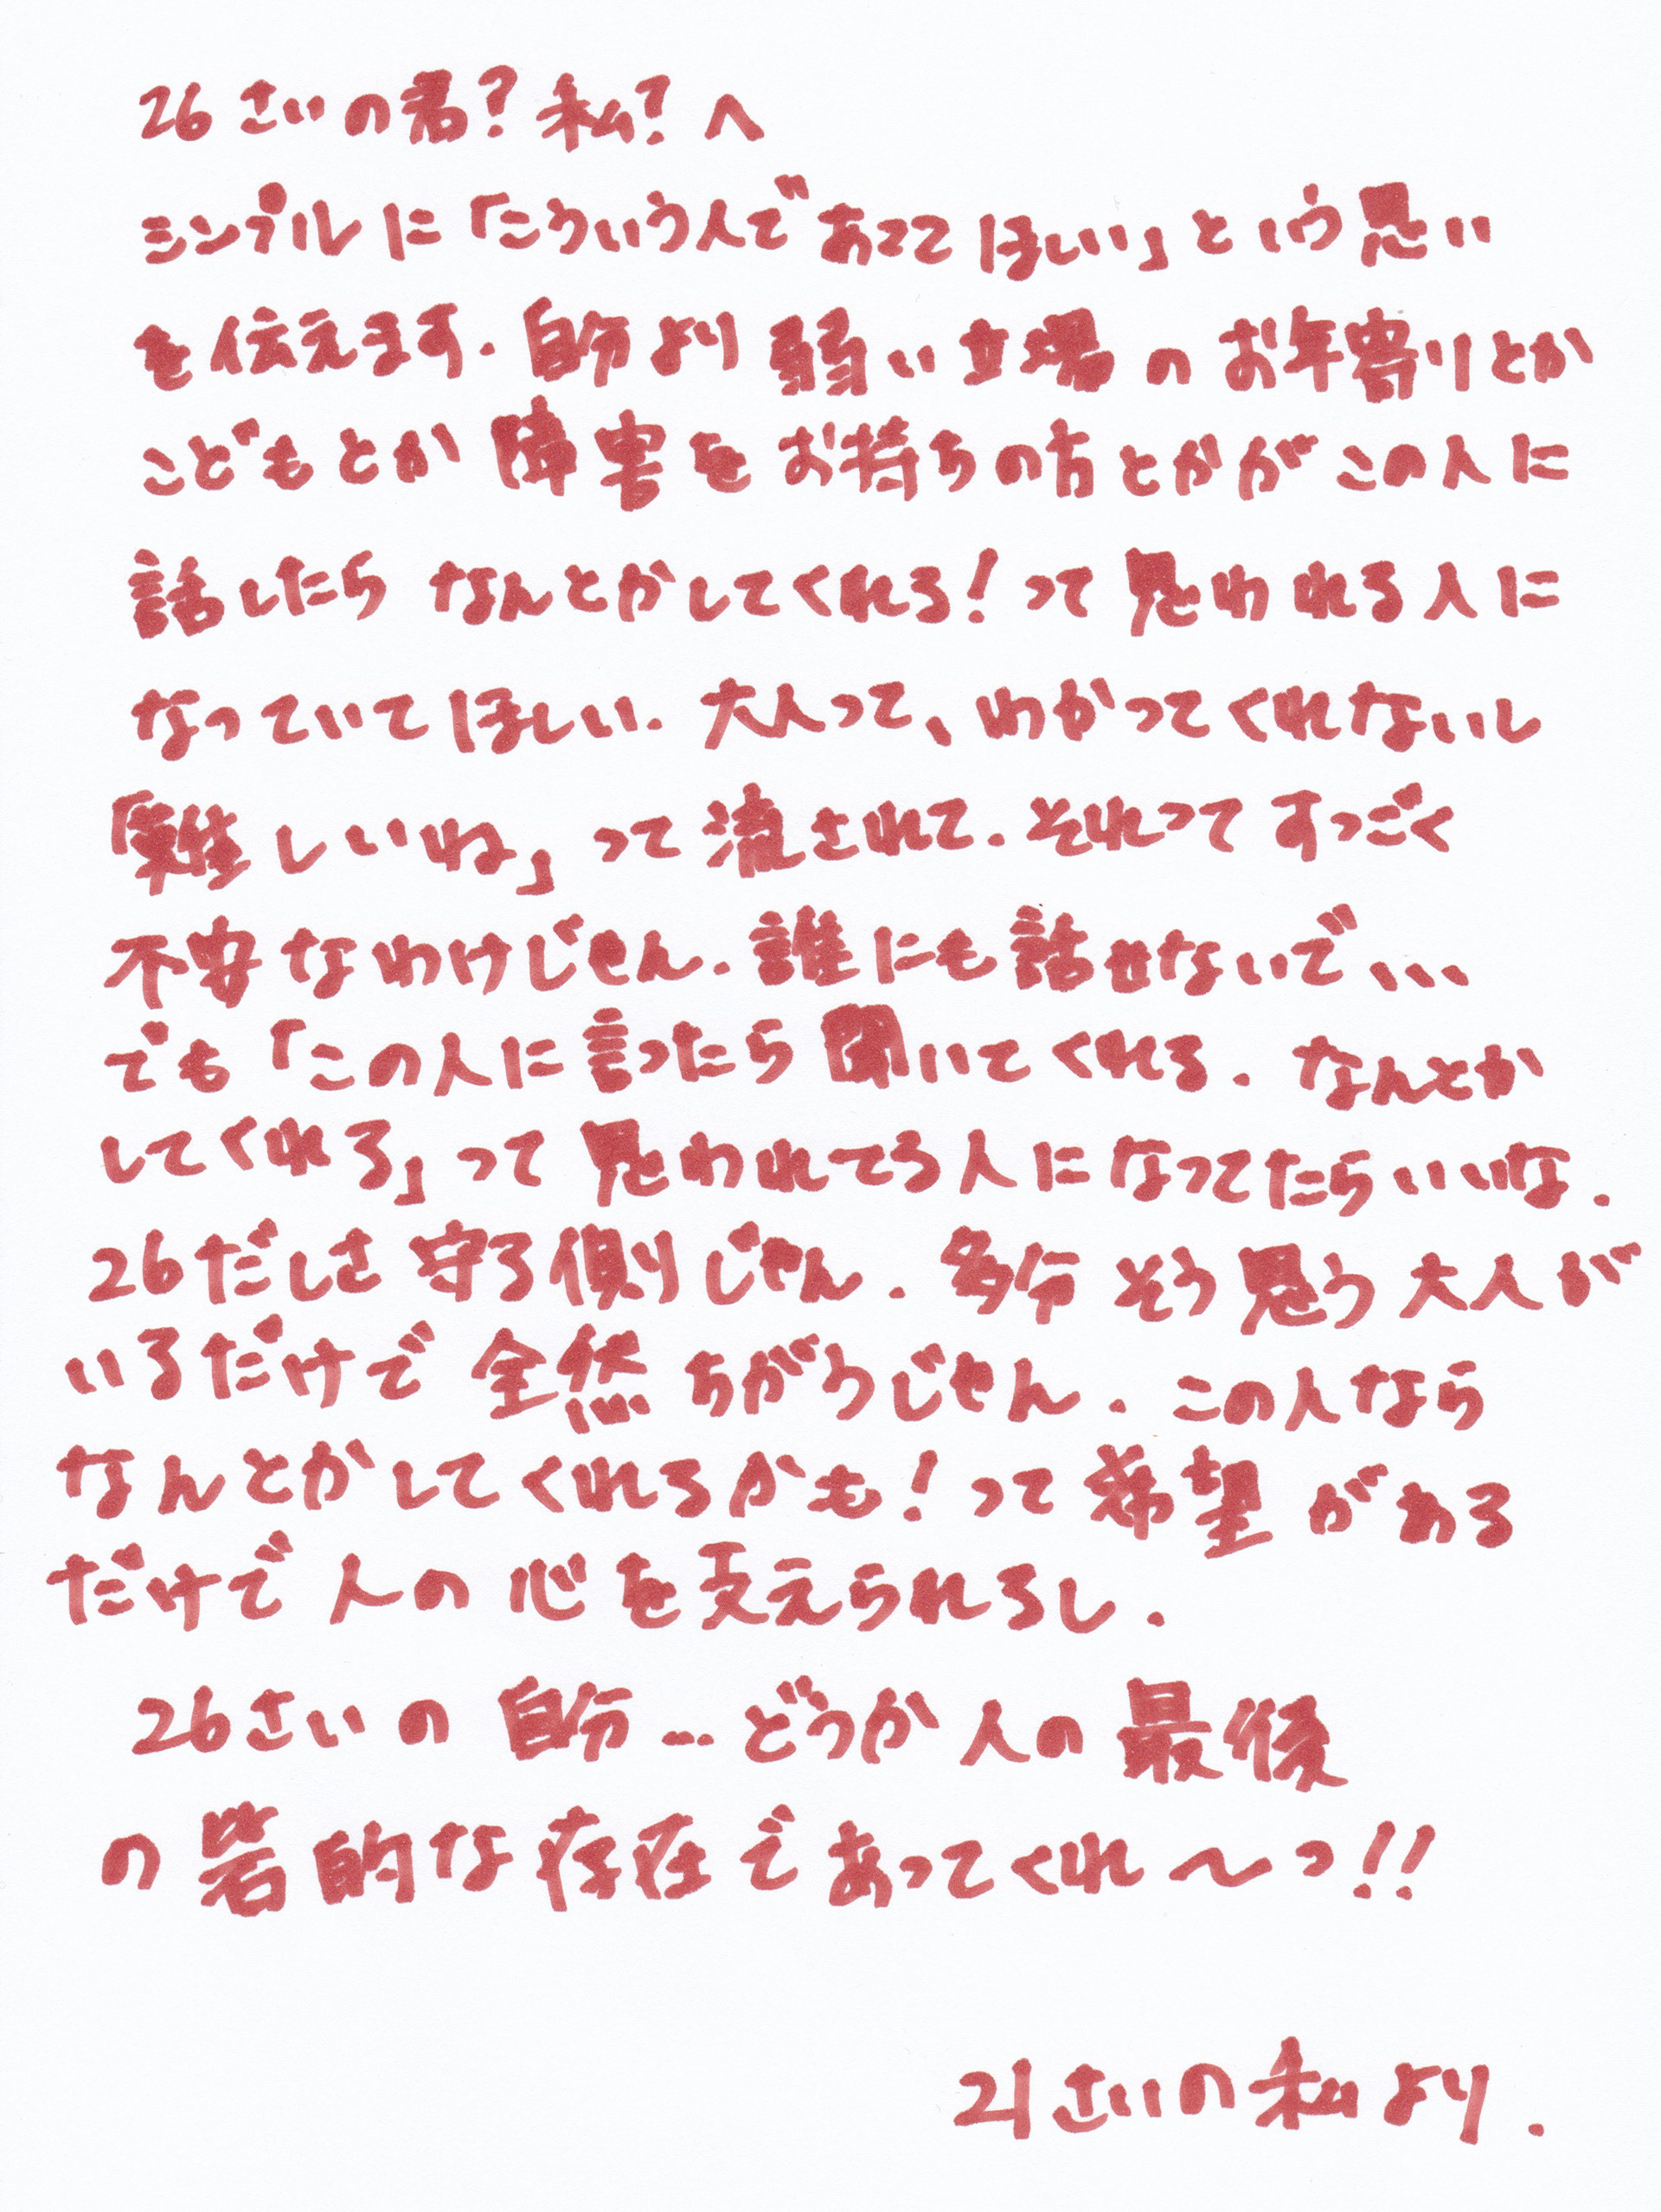 26さいの君?私?へ
シンプルに「こういう人であってほしい」という思い
を伝えます.自分より弱い立場のお年寄りとか
こどもとか障害をお持ちの方とかがこの人に
話したらなんとかしてくれる!って思われる人に
なっていてほしい.大人って、わかってくれないし
「難しいね」って流されて.それってすっごく
不安なわけじゃん.誰にも話せないで、、、
でも「この人に言ったら聞いてくれる.なんとか
してくれる」って思われてる人になってたらいいな.
26だしさ守る側じゃん.多分そう思う大人が
いるだけで全然ちがうじゃん.この人なら
なんとかしてくれるかも!って希望がある
だけで人の心を支えられるし.
26さいの自分…どうか人の最後
の砦的な存在であってくれ〜っ!!
21さいの私より.